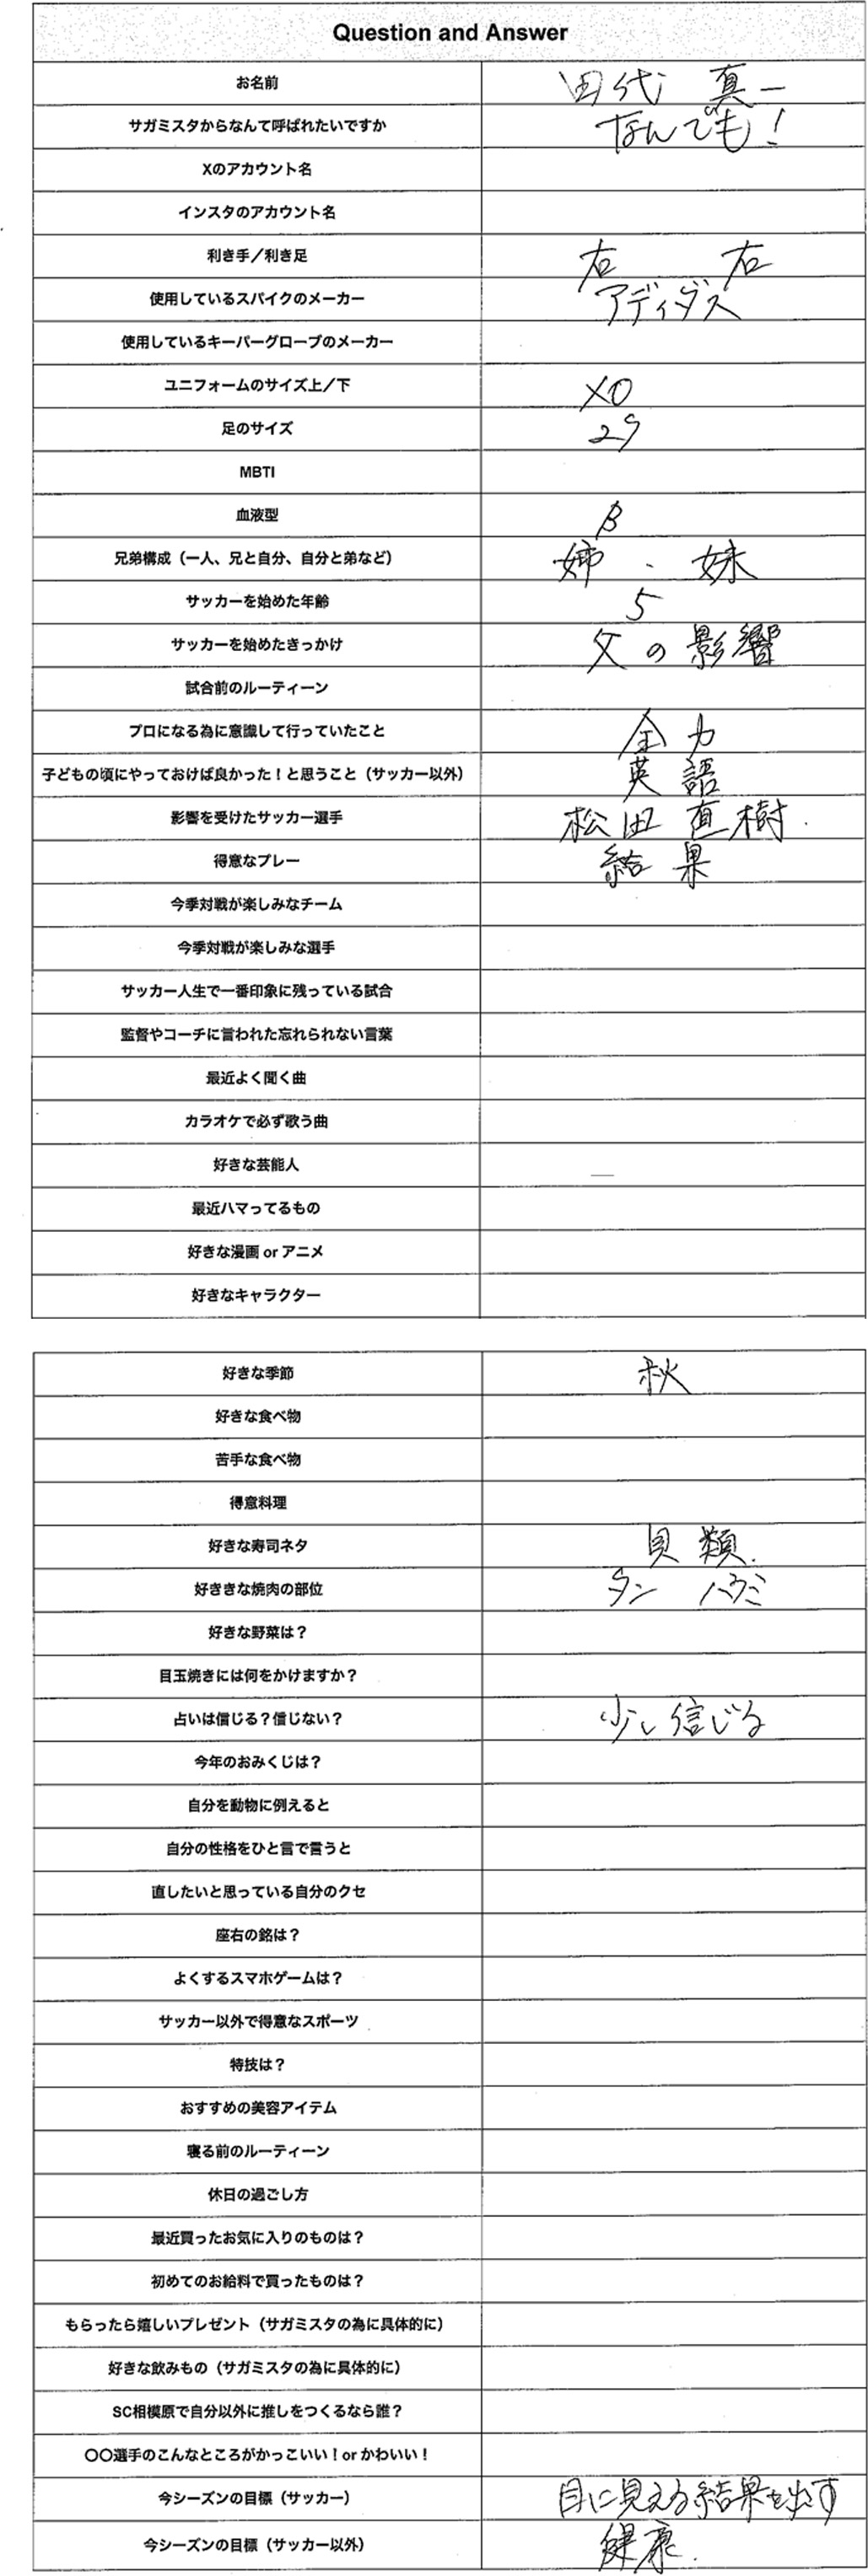 Question and Answer
お名前 田代 真一
サガミスタからなんて呼ばれたいですか なんでも！
Xのアカウント名
インスタのアカウント名
利き手／利き足 右 右
使用しているスパイクのメーカー アディダス
使用しているキーパーグローブのメーカー
ユニフォームのサイズ上／下 XO
足のサイズ 29
MBTI
血液型 B
兄弟構成（一人、兄と自分、自分と弟など） 姉・妹
サッカーを始めた年齢 5
サッカーを始めたきっかけ 父の影響
試合前のルーティーン
プロになる為に意識して行っていたこと 全力
子どもの頃にやっておけば良かった！と思うこと（サッカー以外） 英語
影響を受けたサッカー選手 松田直樹.
得意なプレー 結果
今季対戦が楽しみなチーム
今季対戦が楽しみな選手
サッカー人生で一番印象に残っている試合
監督やコーチに言われた忘れられない言葉
最近よく聞く曲
カラオケで必ず歌う曲
好きな芸能人
最近ハマってるもの
好きな漫画 or アニメ
好きなキャラクター
好きな季節 秋
好きな食べ物
苦手な食べ物
得意料理
好きな寿司ネタ 貝類.
好ききな焼肉の部位 タン ハラミ
好きな野菜は？
目玉焼きには何をかけますか？
占いは信じる？信じない？ 少し信じる
今年のおみくじは？
自分を動物に例えると
自分の性格をひと言で言うと
直したいと思っている自分のクセ
座右の銘は？
よくするスマホゲームは？
サッカー以外で得意なスポーツ
特技は？
おすすめの美容アイテム
寝る前のルーティーン
休日の過ごし方
最近買ったお気に入りのものは？
初めてのお給料で買ったものは？
もらったら嬉しいプレゼント（サガミスタの為に具体的に）
好きな飲みもの（サガミスタの為に具体的に）
SC相模原で自分以外に推しをつくるなら誰？
〇〇選手のこんなところがかっこいい！or かわいい！
今シーズンの目標（サッカー） 目に見える結果を出す
今シーズンの目標（サッカー以外） 健康.